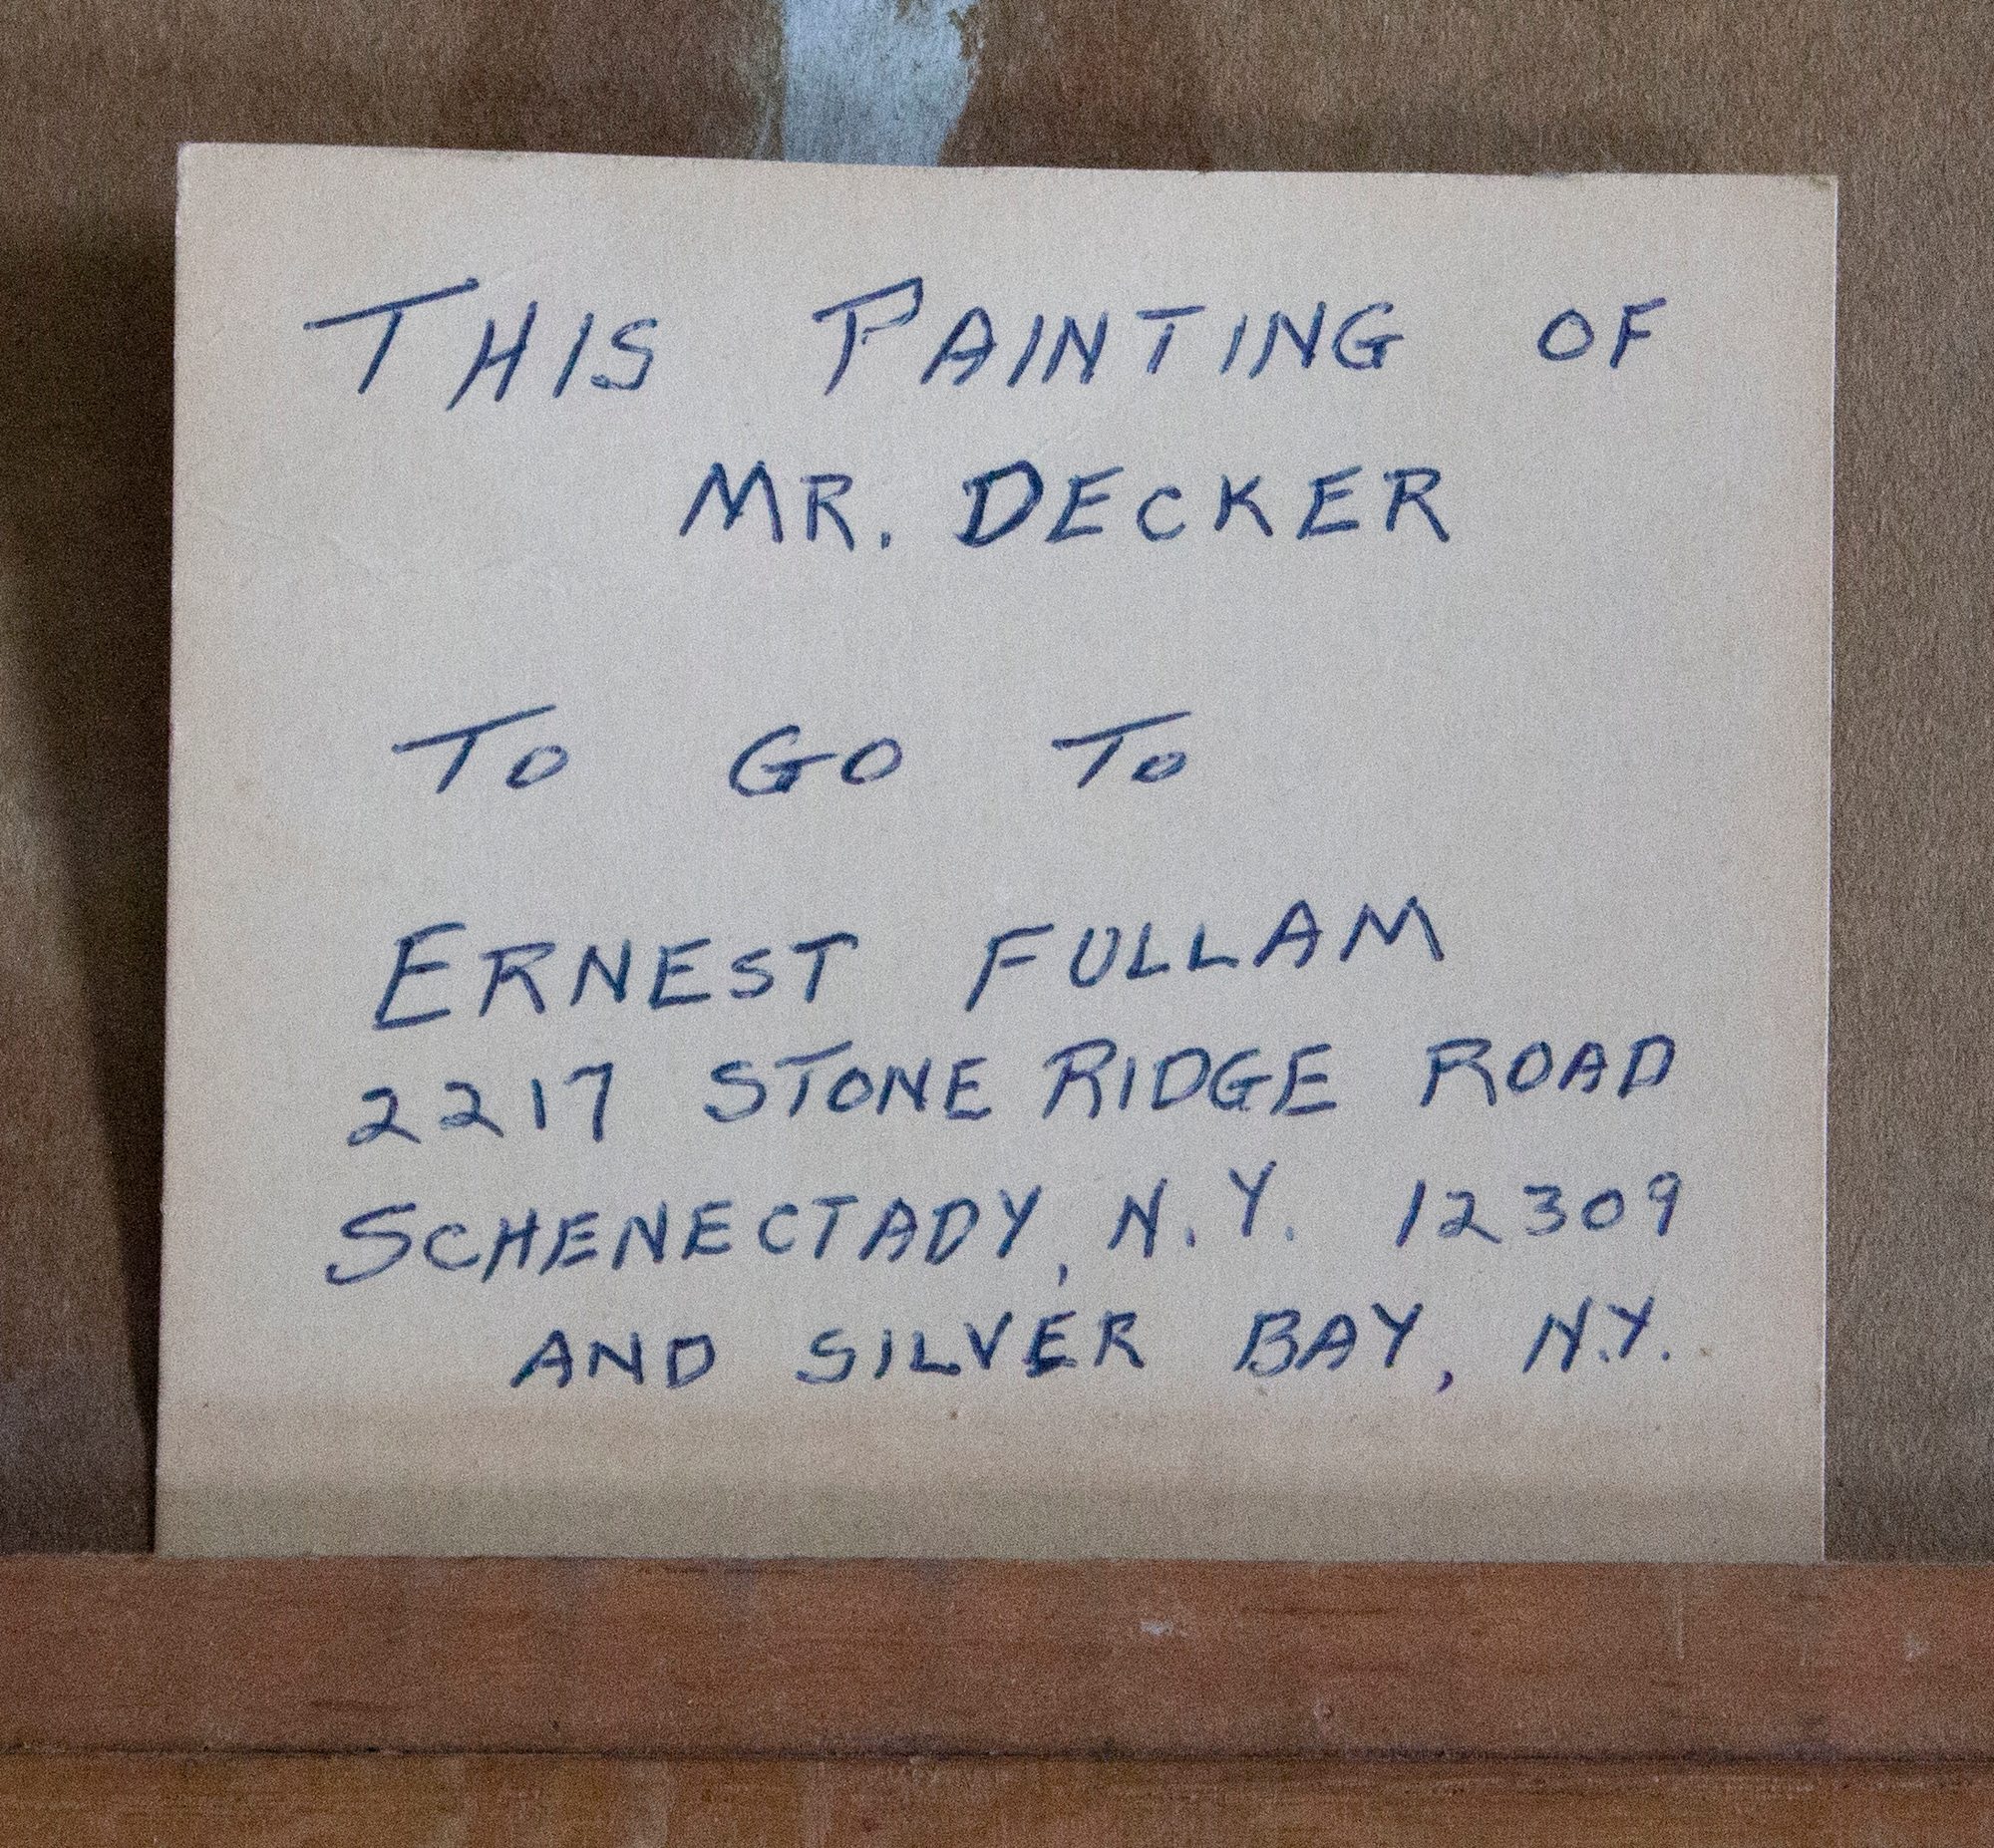 THIS PAINTING OF
MR. DECKER
TO GO TO
ERNEST FULLAM
2217 STONE RIDGE ROAD
SCHENECTADY, N.Y. 12309
AND SILVER BAY, N.Y.